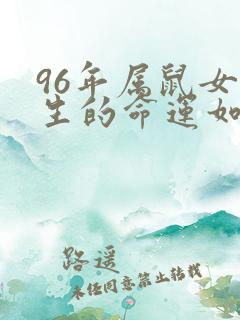 96年属鼠女
生的命运如
路遥
未经同意禁止转载